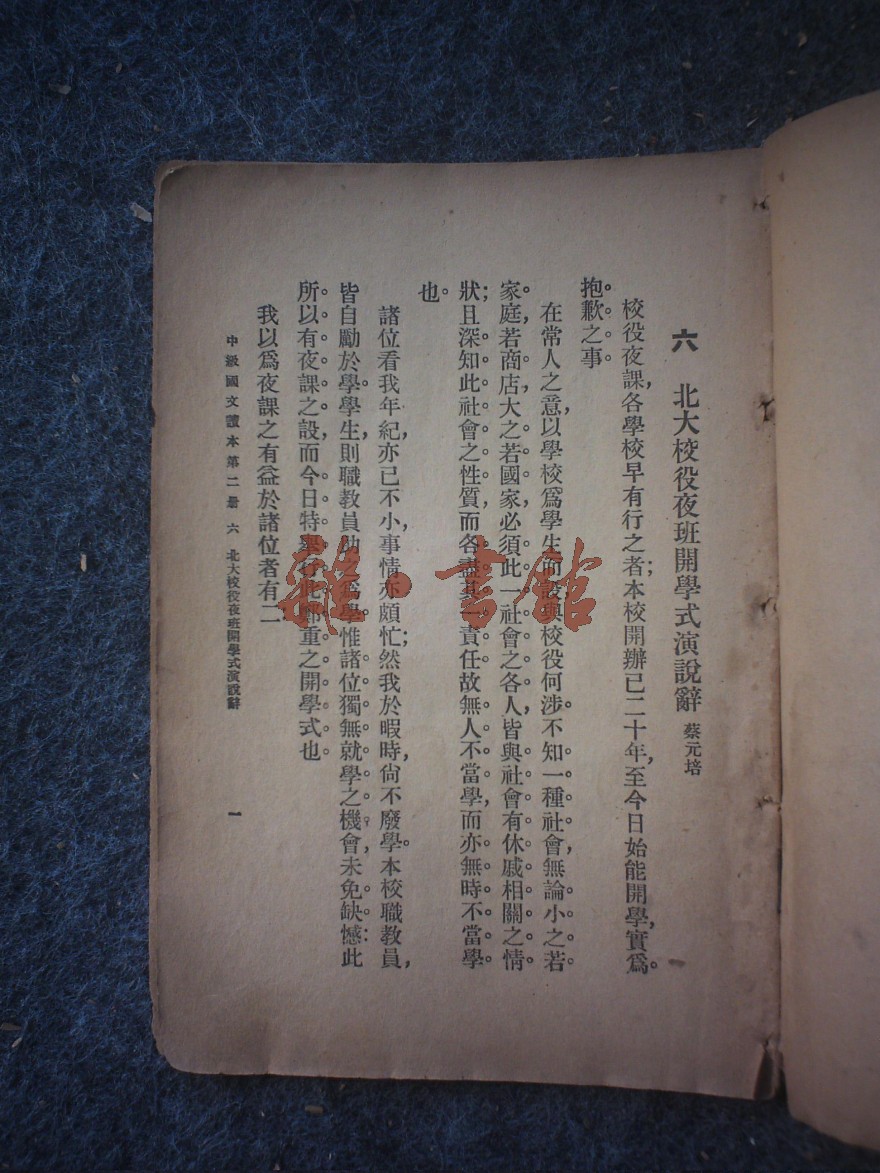 六 北大校役夜班開學式演說辭 蔡元培
校役夜課,各學校早有行之者;本校開辦已二十年,至今日始能開學,實爲
抱歉之事。
在常人之意,以學校爲學生而設,與校役何涉。不知一種社會,無論小之若
家庭,若商店,大之若國家,必須此一社會之各人,皆與社會有休戚相關之情
狀;且深知此社會之性質,而各盡其一責任。故無人不當學,而亦無時不當學
也。
諸位看我年紀亦已不小,事情亦頗忙;然我於暇時,尙不廢學。本校職教員,
皆自勵於學。學生,則職教員助之爲學。惟諸位獨無就學之機會,未免缺憾:此
所以有夜課之設,而今日特舉行此鄭重之開學式也。
我以爲夜課之有益於諸位者有二
中級國文讀本第二册 六 北大校役夜班開學式演說辭 一
雅 書館